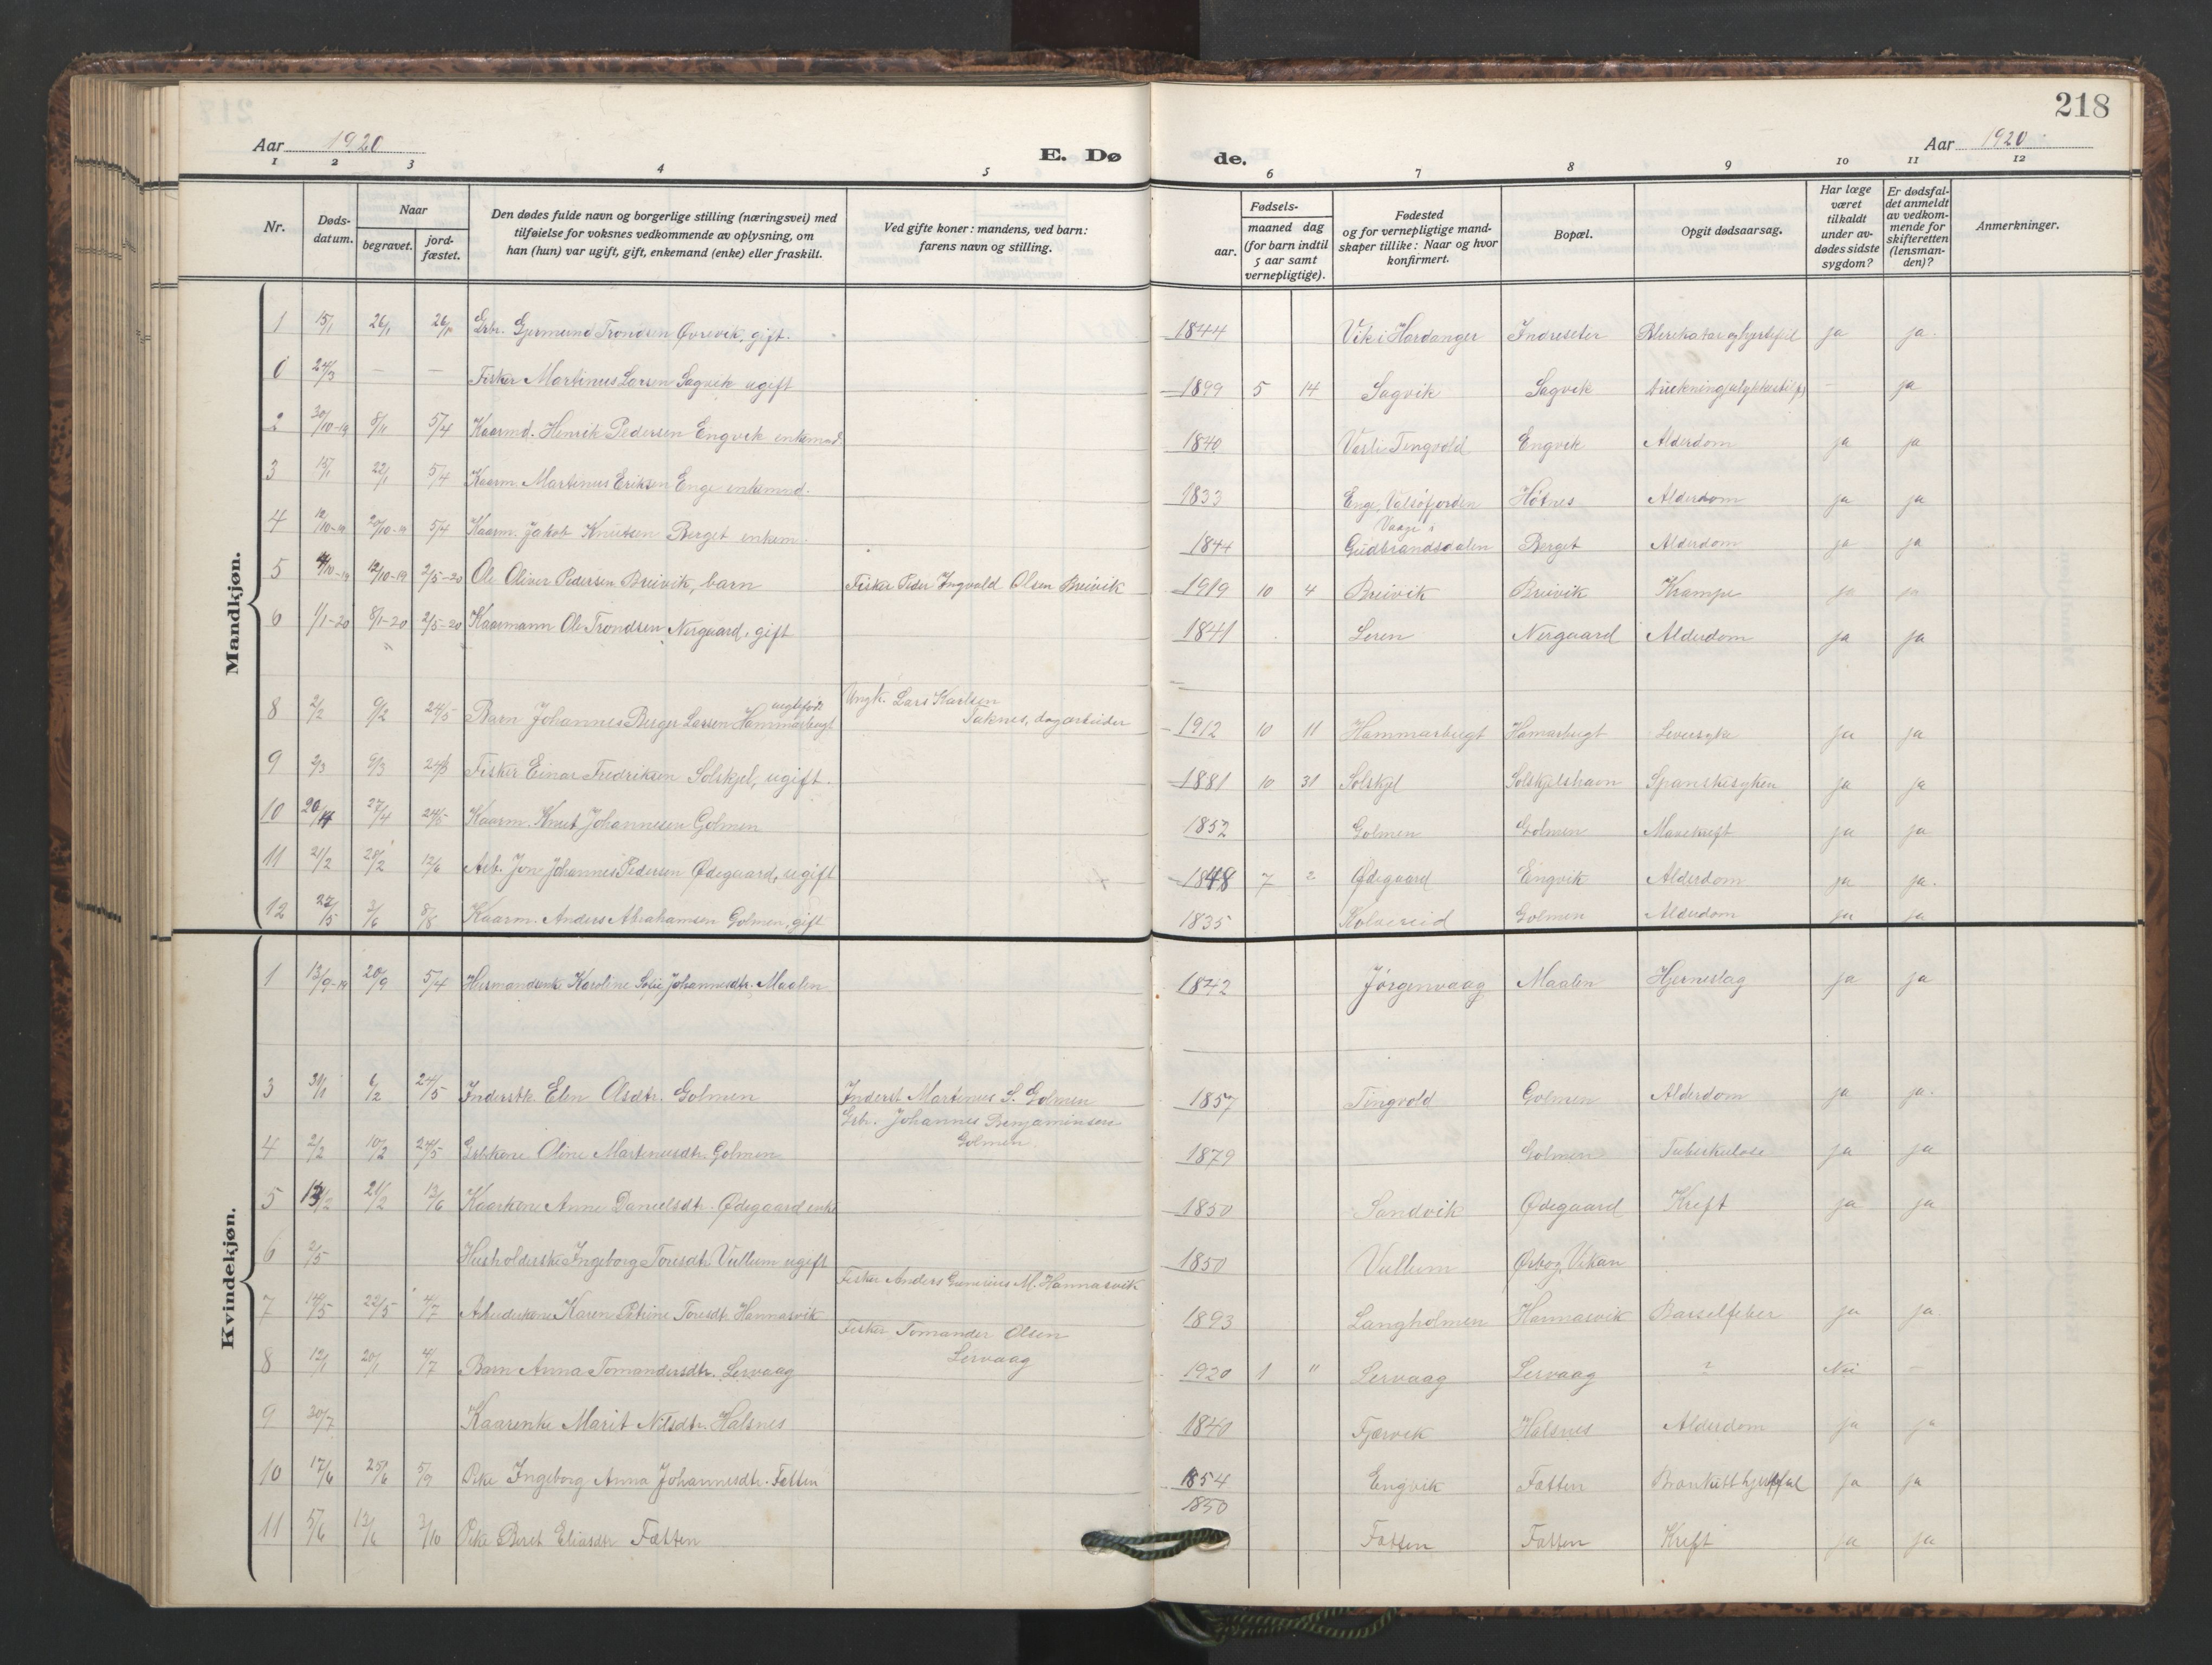 218
Aar 1920
E. Dø
de.
Aar 1920
1 2 3 4 5 6 7 8 9 10 11 12
Nr.
Dødsdatum.
Naar
begravet.
jordfæstet.
Den dødes fulde navn og borgerlige stilling (næringsvei) med
tilføielse for voksnes vedkommende av oplysning, om
han (hun) var ugift, gift, enkemand (enke) eller fraskilt.
Ved gifte koner: mandens, ved barn:
farens navn og stilling.
Fødsels-
aar.
maaned dag
(for barn indtil
5 aar samt
vernepligtige).
Fødested
og for vernepligtige mand-
skaper tillike: Naar og hvor
konfirmert.
Bopæl.
Opgit dødsaarsag.
Har læge
været
tilkaldt
under av-
dødes sidste
sygdom?
Er dødsfal-
det anmeldt
av vedkom-
mende for
skifteretten
(lensman-
den)?
Anmerkninger.
Mandkjøn.
1 15/1 26/1 26/1 Gbr. Gjermund Trondsen Øvrevik, gift. 1844 Vik i Hardanger Indreseter ja ja.
0 24/3 — — Fisker Martinus Larsen Sagvik ugift 1899 5 14 Sagvik Sagvik — ja
2 30/10-19 8/11 5/4 Kaarmd. Henrik Pedersen Engvik enkemad 1840 Tingvold Engvik Alderdom ja ja
3 15/1 22/1 5/4 Kaarm. Martinus Eriksen Enge enkemnd. 1833 Enge, Valsøfjorden Hôtnes Alderdom ja ja
4 12/10-19 20/10-19 5/4 Kaarm. Jakob Knutsen Berget enkem. 1844 Vaage i
Gudbrandsdalen Berget Alderdom ja ja
5 4/10-19 12/10-19 2/5-20 Ole Oliver Pedersen Breivik, barn Fisker Peder Ingvald Olsen Breivik 1919 10 4 Breivik Breivik Krampe ja ja
6 1/1-20 8/1-20 2/5-20 Kaarmann Ole Trondsen Nergaard, gift 1841 Leren Nergaard Alderdom ja ja
8 2/2 9/2 24/5 Barn Johannes Berger Larsen Hammarbugt uegtefødt Ungk. Lars Karlsen
Taknes, dagarbeider 1912 10 11 Hammarbugt Hamarbugt Leversyke ja ja
9 2/3 9/3 24/5 Fisker Einar Fredriksen Solskjel, ugift. 1881 10 31 Solskjel Solskjelshavn Spanskesyken ja ja
10 20/4 27/4 24/5 Kaarm. Knut Johannesen Golmen 1852 Golmen Golmen Mavekreft ja ja
11 21/2 28/2 12/6 Arb. Jon Johannes Pedersen Ødegaard, ugift 1848 7 2 Ødegaard Engvik Alderdom ja ja.
12 22/5 3/6 8/8 Kaarm. Anders Abrahamsen Golmen, gift 1835 Kolvereid Golmen Alderdom ja ja
Kvindekjøn.
1 13/9-19 20/9 5/4 Husmandsenke Karoline Sofie Johannesdtr. Maalen 1842 Jörgenvaag Maalen Hjerneslag ja ja
3 31/1 6/2 24/5 Inderstk. Elen Olsdtr. Golmen Inderst Martinus S. Golmen 1857 Tingvold Golmen Alderdom ja ja.
4 2/2 10/2 24/5 Gbrkone Oline Martinusdtr. Golmen Gbr. Johannes Benjaminsen
Golmen 1879 Golmen Tuberkulose ja ja
5 13/2 21/2 13/6 Kaarkone Anne Danielsdtr. Ødegaard enke 1850 Sandvik Ødegaard Kreft ja ja
6 2/5 Husholderske Ingeborg Toresdtr. Vullum ugift 1850 Vullum Vikan
7 14/5 22/5 4/7 Arbeiderkone Karen Petrine Toresdtr. Hannasvik Fisker Anders M. Hannasvik 1893 Langholmen Hannasvik Barselfeber ja ja.
8 12/1 20/1 4/7 Barn Anna Tomandersdtr. Lervaag Fisker Tomander Olsen
Lervaag 1920 1 " Lervaag Lervaag ? Nei —
9 30/7 Kaarenke Marit Nilsdtr. Halsnes 1840 Fjærvik Halsnes Alderdom ja ja
10 17/6 25/6 5/9 Pike Ingeborg Anna Johannesdtr. Fætten 1854 Engvik Fætten ja ja
1850
11 5/6 13/6 3/10 Pike Beret Eliasdtr Fætten Fætten Fætten Kreft ja ja